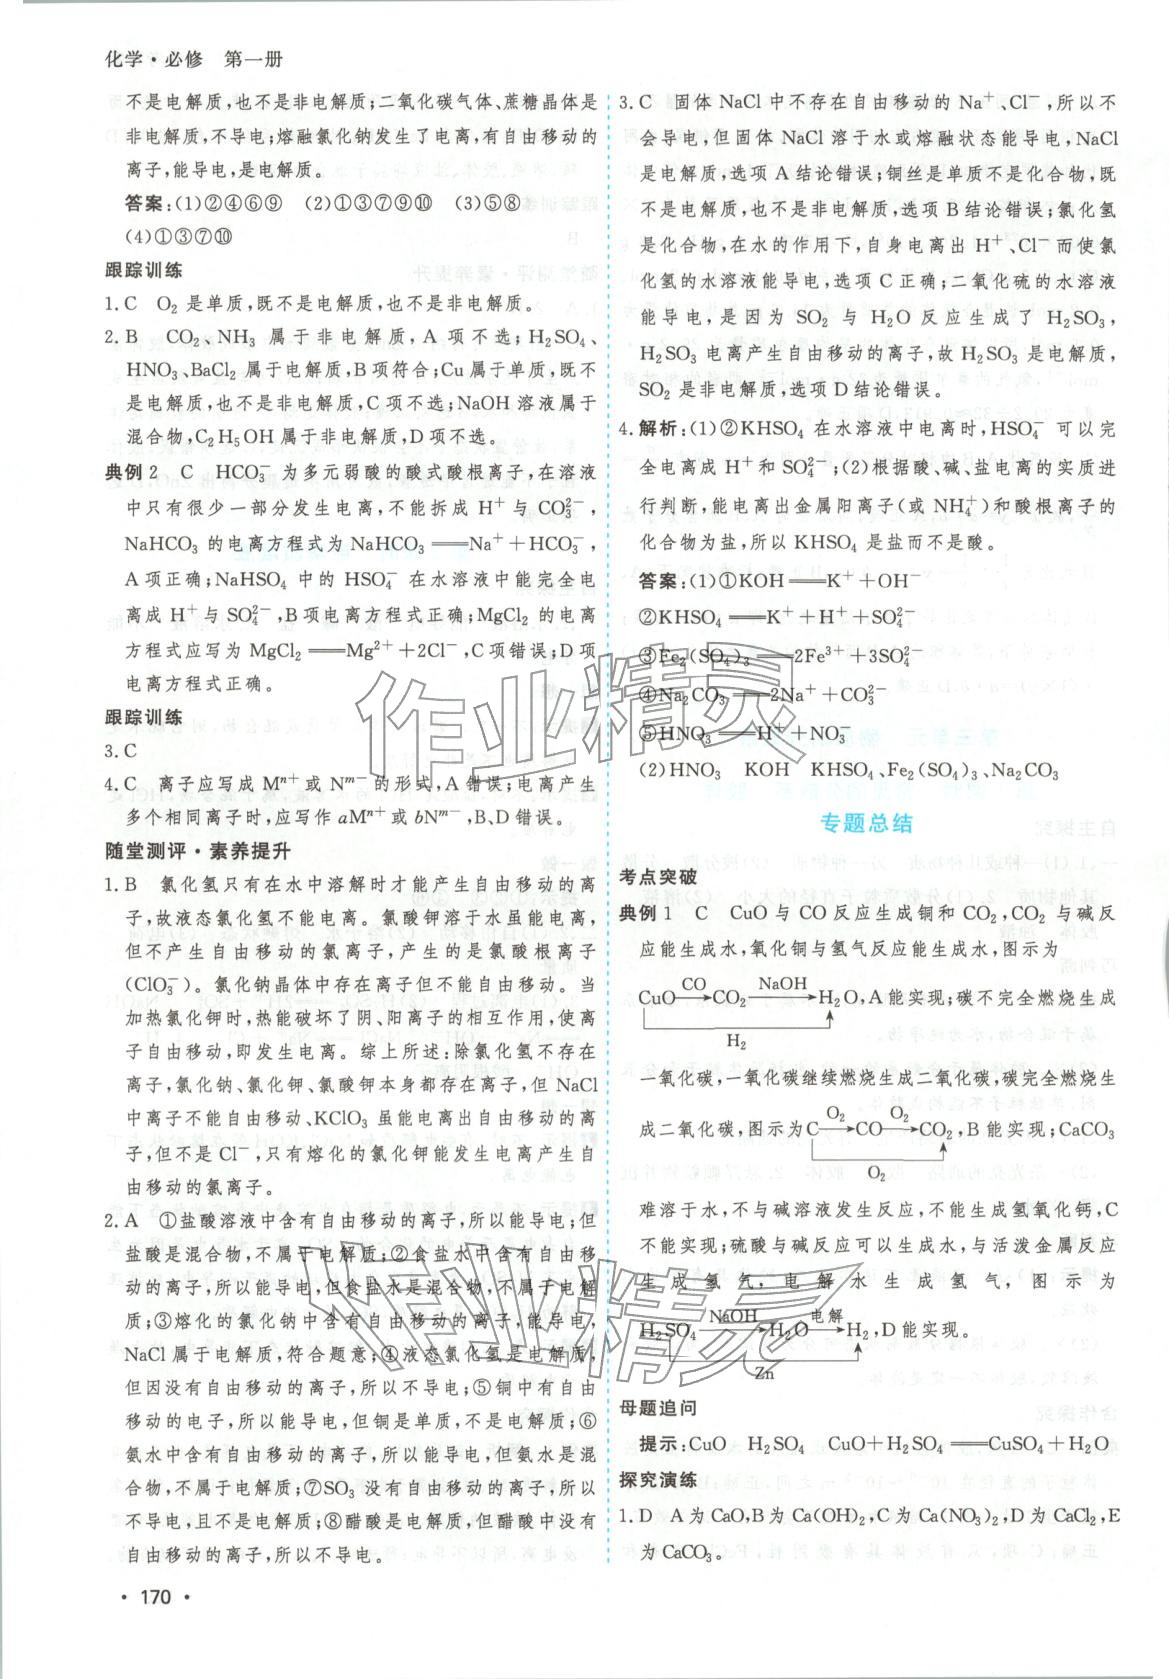 化学·必修　第一册
不是电解质,也不是非电解质;二氧化碳气体、蔗糖晶体是
非电解质,不导电;熔融氯化钠发生了电离,有自由移动的
离子,能导电,是电解质。
答案:(1)②④⑥⑨　(2)①③⑦⑨⑩　(3)⑤⑧
(4)①③⑦⑩
跟踪训练
1.C　O₂ 是单质,既不是电解质,也不是非电解质。
2.B　CO₂、NH₃ 属于非电解质,A 项不选;H₂SO₄、
HNO₃、BaCl₂ 属于电解质,B项符合;Cu属于单质,既不
是电解质,也不是非电解质,C项不选;NaOH 溶液属于
混合物,C₂H₅OH 属于非电解质,D项不选。
典例 2　C　HCO₃⁻ 为多元弱酸的酸式酸根离子,在溶液
中只有很少一部分发生电离,不能拆成 H⁺ 与 CO₃²⁻,
NaHCO₃ 的电离方程式为 NaHCO₃══Na⁺＋HCO₃⁻,
A 项正确;NaHSO₄ 中的 HSO₄⁻ 在水溶液中能完全电
离成 H⁺与 SO₄²⁻,B项电离方程式正确;MgCl₂ 的电离
方程式应写为 MgCl₂══Mg²⁺＋2Cl⁻,C项错误;D项
电离方程式正确。
跟踪训练
3.C
4.C　离子应写成 Mⁿ⁺或 Nᵐ⁻的形式,A错误;电离产生
多个相同离子时,应写作 aMⁿ⁺或 bNᵐ⁻,B、D错误。
随堂测评·素养提升
1.B　氯化氢只有在水中溶解时才能产生自由移动的离
子,故液态氯化氢不能电离。氯酸钾溶于水虽能电离,
但不产生自由移动的氯离子,产生的是氯酸根离子
(ClO₃⁻)。氯化钠晶体中存在离子但不能自由移动。当
加热氯化钾时,热能破坏了阴、阳离子的相互作用,使离
子自由移动,即发生电离。综上所述:除氯化氢不存在
离子,氯化钠、氯化钾、氯酸钾本身都存在离子,但 NaCl
中离子不能自由移动、KClO₃ 虽能电离出自由移动的离
子,但不是 Cl⁻,只有熔化的氯化钾能发生电离产生自
由移动的氯离子。
2.A　①盐酸溶液中含有自由移动的离子,所以能导电;但
盐酸是混合物,不属于电解质;②食盐水中含有自由移
动的离子,所以能导电,但食盐水是混合物,不属于电解
质;③熔化的氯化钠中含有自由移动的离子,能导电,
NaCl 属于电解质,符合题意;④液态氯化氢是电解质,
但因没有自由移动的离子,所以不导电;⑤铜中有自由
移动的电子,所以能导电,但铜是单质,不是电解质;⑥
氨水中含有自由移动的离子,所以能导电,但氨水是混
合物,不属于电解质;⑦SO₃ 没有自由移动的离子,所以
不导电,且不是电解质;⑧醋酸是电解质,但醋酸中没有
自由移动的离子,所以不导电。
· 170 ·
3.C　固体 NaCl 中不存在自由移动的 Na⁺、Cl⁻,所以不
会导电,但固体 NaCl 溶于水或熔融状态能导电,NaCl
是电解质,选项 A 结论错误;铜丝是单质不是化合物,既
不是电解质,也不是非电解质,选项 B 结论错误;氯化氢
是化合物,在水的作用下,自身电离出 H⁺、Cl⁻ 而使氯
化氢的水溶液能导电,选项C正确;二氧化硫的水溶液
能导电,是因为 SO₂ 与 H₂O 反应生成了 H₂SO₃,
H₂SO₃ 电离产生自由移动的离子,故 H₂SO₃ 是电解质,
SO₂ 是非电解质,选项 D 结论错误。
4.解析:(1)②KHSO₄ 在水溶液中电离时,HSO₄⁻ 可以完
全电离成 H⁺和 SO₄²⁻;(2)根据酸、碱、盐电离的实质进
行判断,能电离出金属阳离子(或 NH₄⁺)和酸根离子的
化合物为盐,所以 KHSO₄ 是盐而不是酸。
答案:(1)①KOH══K⁺＋OH⁻
②KHSO₄══K⁺＋H⁺＋SO₄²⁻
③Fe₂(SO₄)₃══2Fe³⁺＋3SO₄²⁻
④Na₂CO₃══2Na⁺＋CO₃²⁻
⑤HNO₃══H⁺＋NO₃⁻
(2)HNO₃　KOH　KHSO₄、Fe₂(SO₄)₃、Na₂CO₃
专题总结
考点突破
典例 1　C　CuO 与 CO 反应生成铜和 CO₂,CO₂ 与碱反
应能生成水,氧化铜与氢气反应能生成水,图示为
CO　NaOH
CuO→CO₂→H₂O,A能实现;碳不完全燃烧生成
H₂
一氧化碳,一氧化碳继续燃烧生成二氧化碳,碳完全燃烧生
O₂　O₂
成二氧化碳,图示为C→CO→CO₂,B能实现;CaCO₃
O₂
难溶于水,不与碱溶液发生反应,不能生成氢氧化钙,C
不能实现;硫酸与碱反应可以生成水,与活泼金属反应
生成氢气,电解水生成氢气,图示为
NaOH　电解
H₂SO₄→H₂O→H₂,D能实现。
Zn
母题追问
提示:CuO　H₂SO₄　CuO＋H₂SO₄══CuSO₄＋H₂O
探究演练
1.D　A 为 CaO,B 为 Ca(OH)₂,C 为 Ca(NO₃)₂,D 为 CaCl₂,E
为 CaCO₃。
作业精灵
作业精灵